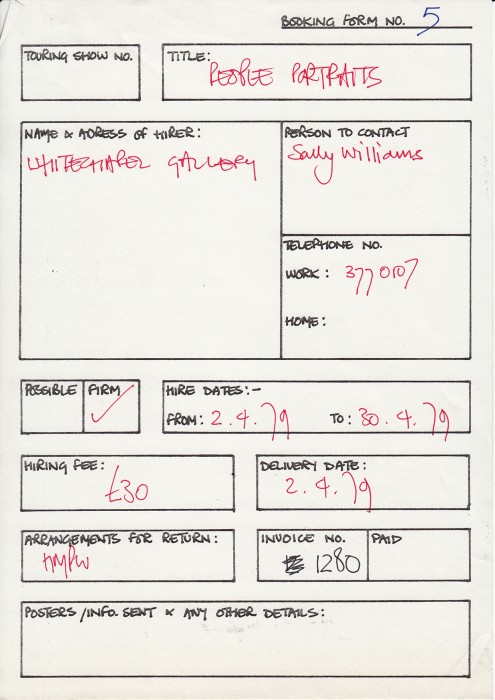 BOOKING FORM NO. 5
TOURING SHOW NO.
TITLE:
PEOPLE PORTRAITS
NAME & ADRESS OF HIRER:
WHITECHAPEL GALLERY
PERSON TO CONTACT
Sally Williams
TELEPHONE NO.
WORK: 377 0107
HOME:
POSSIBLE
FIRM
HIRE DATES:-
FROM: 2.4.79 TO: 30.4.79
HIRING FEE:
£30
DELIVERY DATE:
2.4.79
ARRANGEMENTS FOR RETURN:
HMPW
INVOICE NO.
1280
PAID
POSTERS/INFO. SENT & ANY OTHER DETAILS: